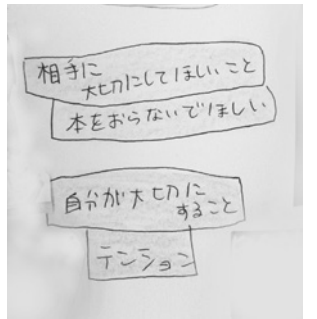 相手に
大切にしてほしいこと
本をおらないでほしい
自分が大切に
すること
テンション